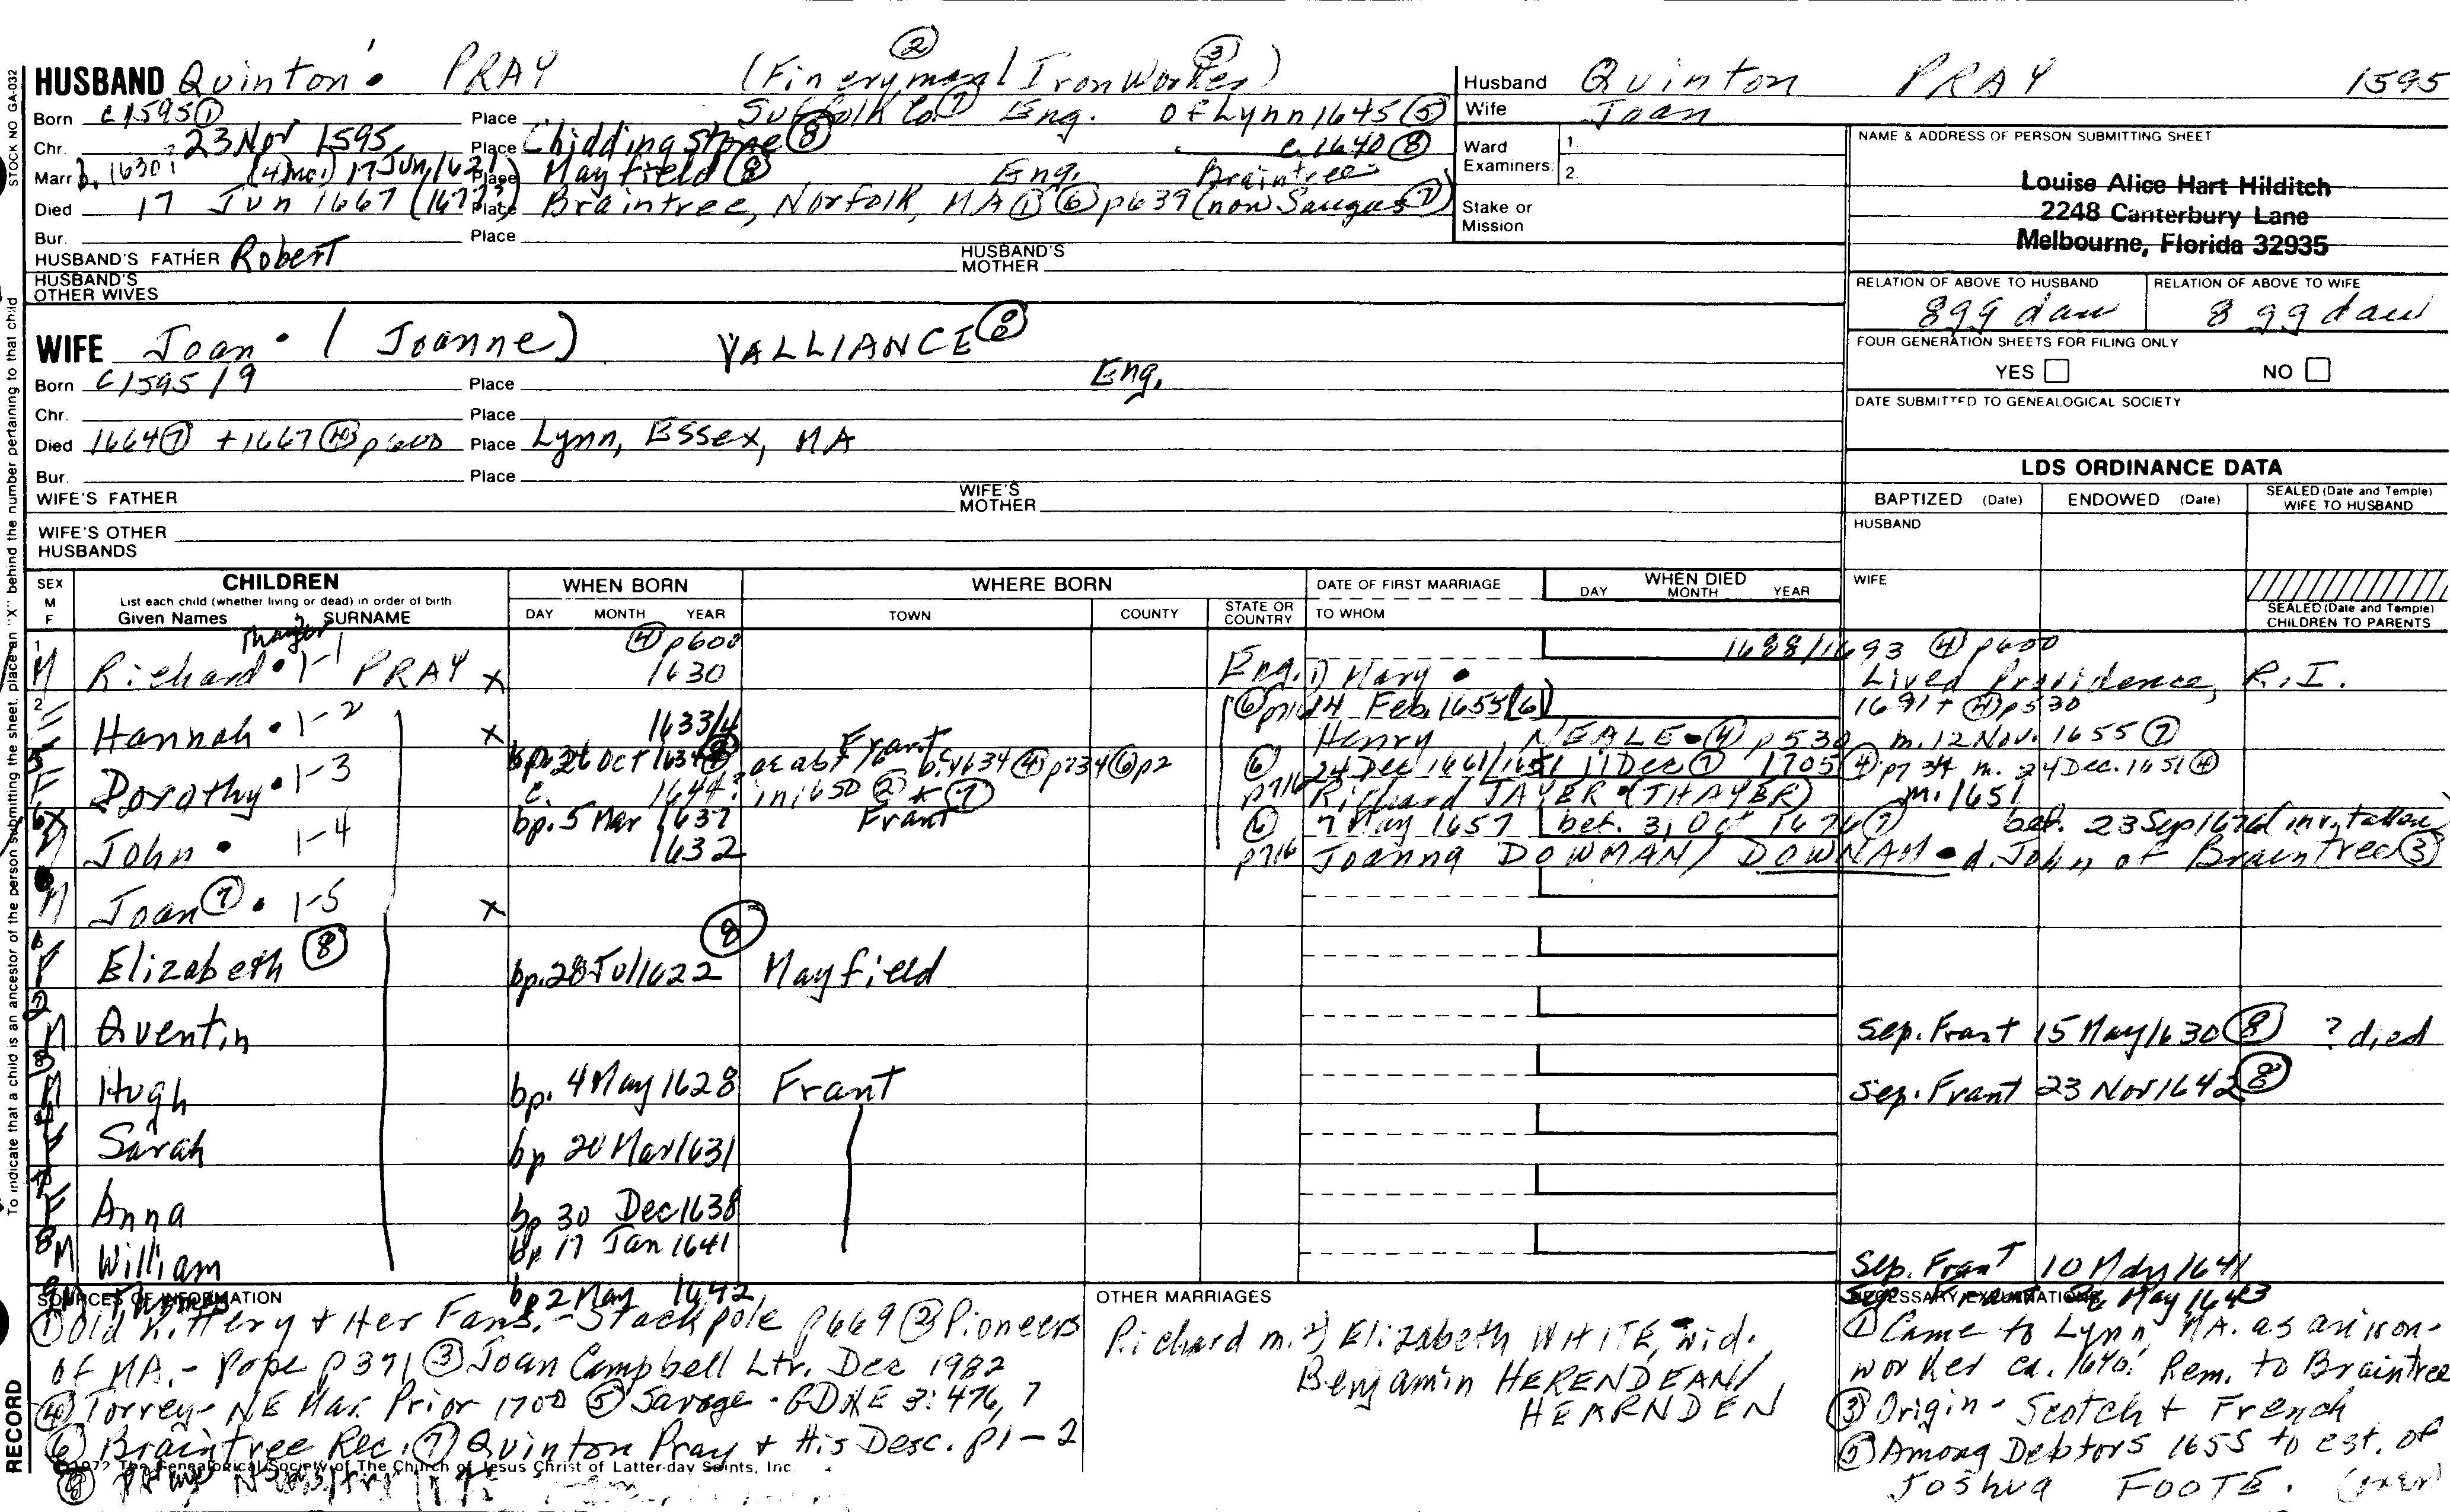 STOCK NO GA-032
To indicate that a child is an ancestor of the person submitting the sheet, place an "X" behind the number pertaining to that child
RECORD
HUSBAND Quinton PRAY (Fineryman ② / Iron Worker ③)
Born c1595① Place Suffolk Co⑦ Eng. of Lynn 1645⑤
Chr. 23 Nov 1595 Place Chiddingstone⑧ c. 1640⑧
Marr b. 1630? (4 mo.) 17 Jun 1621 Place Mayfield⑧ Eng. Braintree
Died 17 Jun 1667 (167 Place Braintree, Norfolk, MA①⑥p639 (now Saugus⑦)
Bur. Place
HUSBAND'S FATHER Robert HUSBAND'S MOTHER
HUSBAND'S OTHER WIVES
Husband Quinton PRAY 1595
Wife Joan
Ward Examiners: 1. 2.
Stake or Mission
NAME & ADDRESS OF PERSON SUBMITTING SHEET
Louise Alice Hart Hilditch
2248 Canterbury Lane
Melbourne, Florida 32935
RELATION OF ABOVE TO HUSBAND RELATION OF ABOVE TO WIFE
8 gg dau 8 gg dau
WIFE Joan (Joanne) VALLIANCE⑧
Born c1595/9 Place Eng.
Chr. Place
Died 1664⑦ +1667④p600 Place Lynn, Essex, MA
Bur. Place
WIFE'S FATHER WIFE'S MOTHER
WIFE'S OTHER HUSBANDS
FOUR GENERATION SHEETS FOR FILING ONLY
YES NO
DATE SUBMITTED TO GENEALOGICAL SOCIETY
LDS ORDINANCE DATA
BAPTIZED (Date) ENDOWED (Date) SEALED (Date and Temple) WIFE TO HUSBAND
HUSBAND
WIFE
SEALED (Date and Temple) CHILDREN TO PARENTS
SEX M F CHILDREN WHEN BORN WHERE BORN DATE OF FIRST MARRIAGE WHEN DIED
List each child (whether living or dead) in order of birth
Given Names SURNAME DAY MONTH YEAR TOWN COUNTY STATE OR COUNTRY TO WHOM DAY MONTH YEAR
1 ④p600 1688/1693 ④p600
M Richard 1-1 PRAY x 1630 Eng. 1) Mary Lived Providence, R.I.
2 ⑥p716 14 Feb 1655(6) 1691+ ④p530
F Hannah 1-2 x 1633/4 Frant Henry NEALE ④p530 m. 12 Nov. 1655⑦
5 bp. 26 Oct 1634⑧ ae abt 16 b. 1634④p734⑥p2 ⑥ 24 Dec 1661/1651 11 Dec⑦ 1705④p734 m. 24 Dec. 1651④
F Dorothy 1-3 c. 1644? in 1650②+⑦ p716 Richard TAYER (THAYER) m. 1651
6x bp. 5 Mar 1637 Frant ⑥ 7 May 1657 bet. 31 Oct 1676⑦ bef. 23 Sep 1676 (inv. taken)
M John 1-4 1632 p716 Joanna DOWMAN/DOWNAM d. John of Braintree③
M Joan⑦ 1-5 x
F Elizabeth⑧ bp. 28 Jul 1622⑧ Mayfield
2 M Quentin Sep. Frant 15 May 1630⑧ ? died
3 M Hugh bp. 4 May 1628 Frant Sep. Frant 23 Nov 1642⑧
4 F Sarah bp 20 Mar 1631
7 F Anna bp 30 Dec 1638
8 M William bp 17 Jan 1641 Sep. Frant 10 May 1641
9 M Thomas bp 2 May 1642 Sep. Frant May 1643
SOURCES OF INFORMATION
①Old Kittery & Her Fams. - Stackpole p669 ②Pioneers
of MA. - Pope p371 ③Joan Campbell Ltr. Dec 1982
④Torrey - NE Mar. Prior 1700 ⑤Savage - GDNE 3:476,7
⑥Braintree Rec. ⑦Quinton Pray & His Desc. p1-2
©1972 The Genealogical Society of The Church of Jesus Christ of Latter-day Saints, Inc.
⑧
OTHER MARRIAGES
Richard m. 2) Elizabeth WHITE, wid.
Benjamin HERENDEAN/
HEARNDEN
NECESSARY EXPLANATIONS
①Came to Lynn, MA. as an iron-
worker ca. 1640. Rem. to Braintree
③Origin - Scotch & French
⑤Among Debtors 1655 to est. of
Joshua FOOTE. (over)